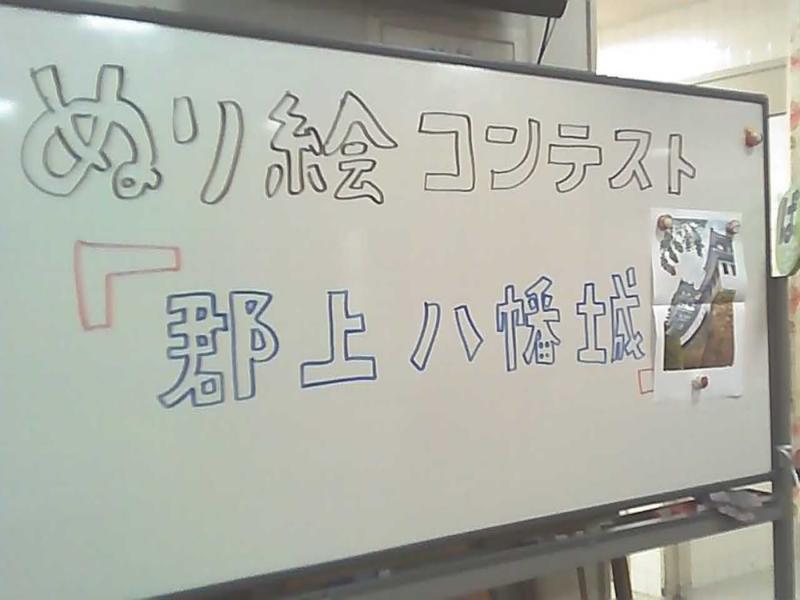 ぬり絵コンテスト
「郡上八幡城」
ば